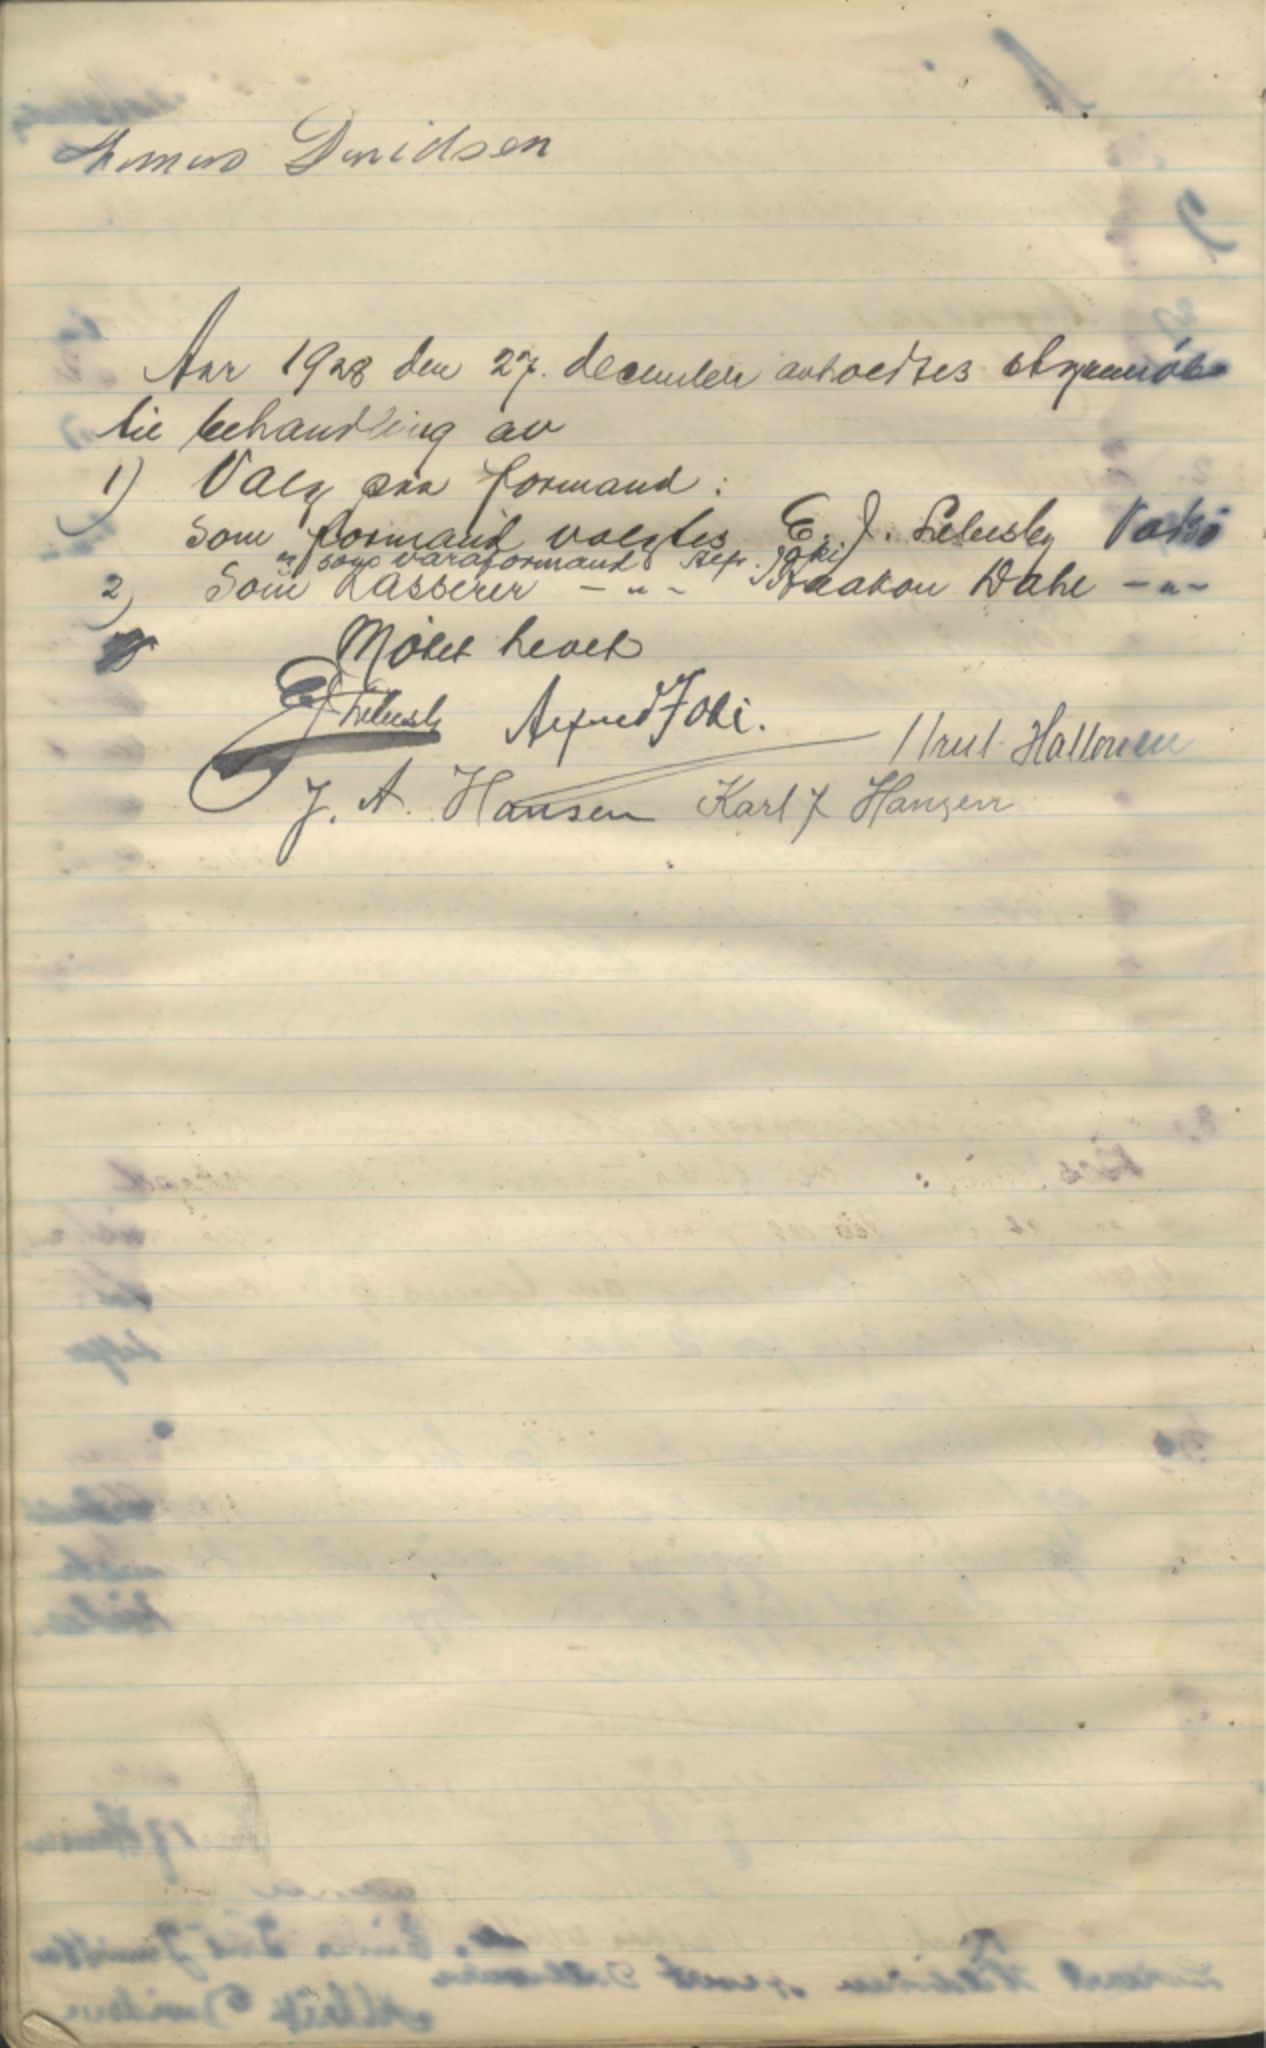 Davidsen
Aar 1928 den 27. december avholdtes styremöte
til behandling av
1) Valg paa formand:
Som formand valgtes E. J. Lebesby Vadsö
" som varaformand Alfr. Joki
2) Som kasserer - " - Haakon Dahl - " -
Mötet hevet
E J Lebesby Alfred Joki. Hallonen
J. A. Hansen Karl J Hansen